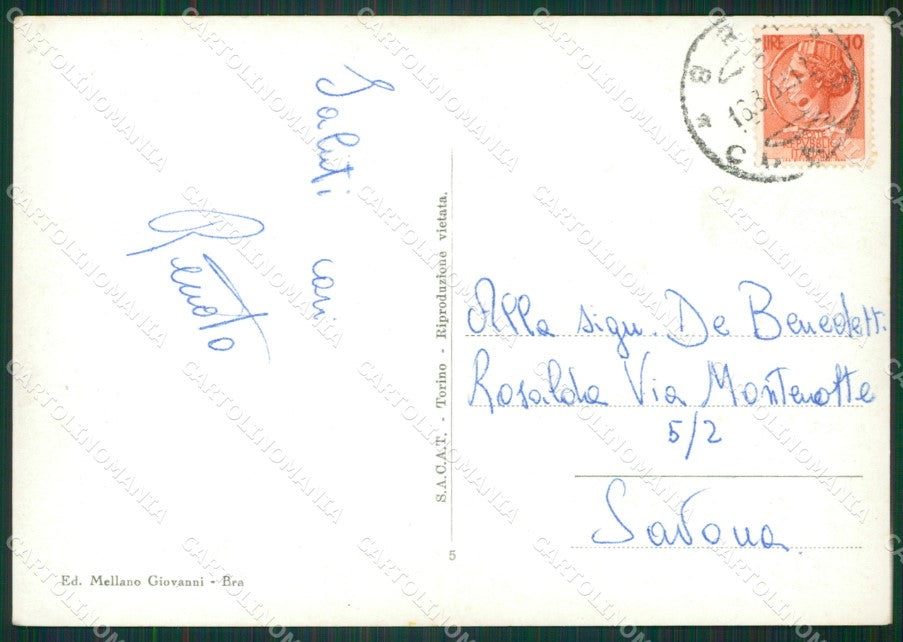 Saluti cari
Renato
S.A.C.A.T. - Torino - Riproduzione vietata.
5
Ed. Mellano Giovanni - Bra
LIRE 10
ITALIANA
Alla sign. De Benedetti
Rosalda Via Montenotte
5/2
Savona
CARTOLINOMANIA